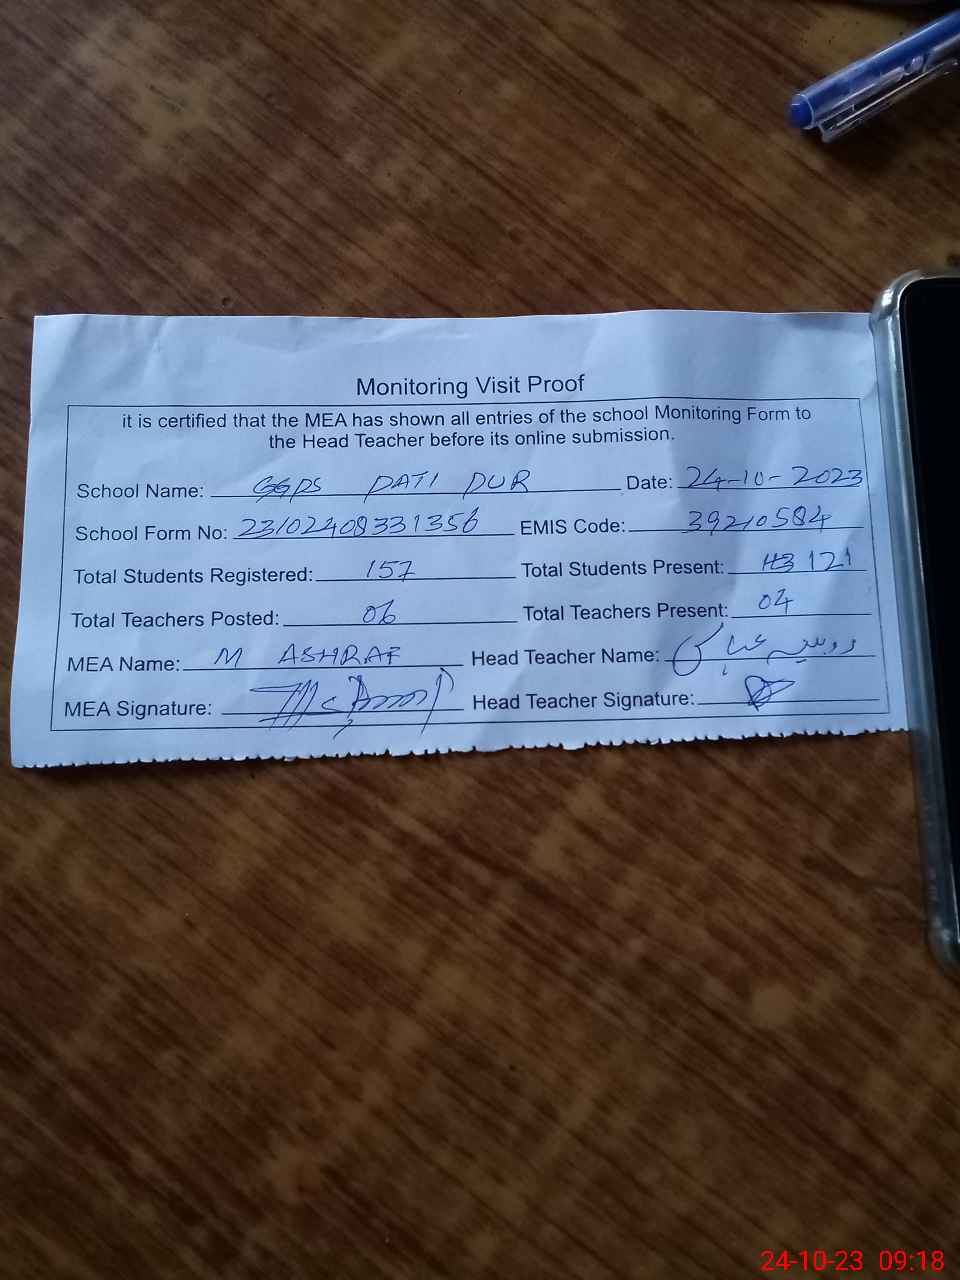 Monitoring Visit Proof
it is certified that the MEA has shown all entries of the school Monitoring Form to
the Head Teacher before its online submission.
School Name: GGPS PATI PUR Date: 24-10-2023
School Form No: 23102408331356 EMIS Code: 39210584
Total Students Registered: 157 Total Students Present: 121
Total Teachers Posted: 06 Total Teachers Present: 04
MEA Name: M ASHRAF Head Teacher Name:
MEA Signature: Head Teacher Signature:
24-10-23 09:18